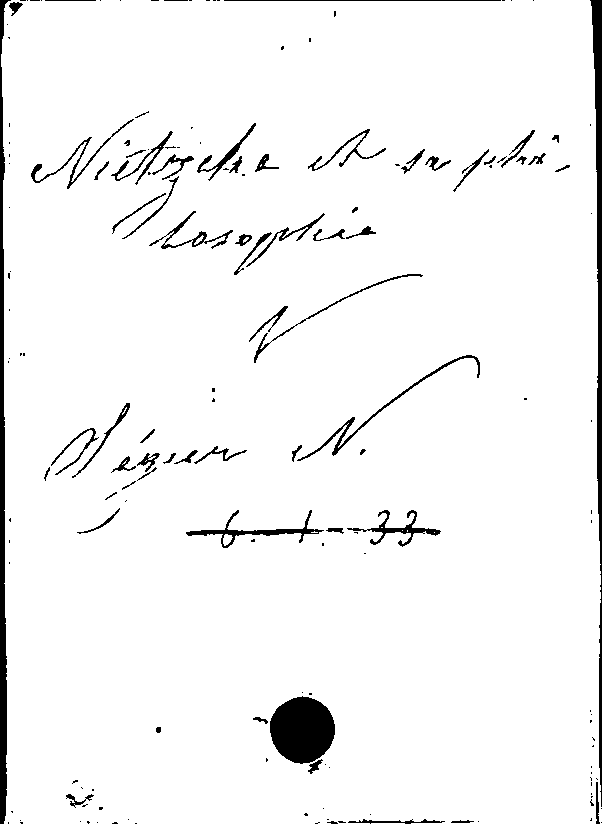 Nietzsche et sa phi-
losophie
V
Ségur N.
6. 1. 33